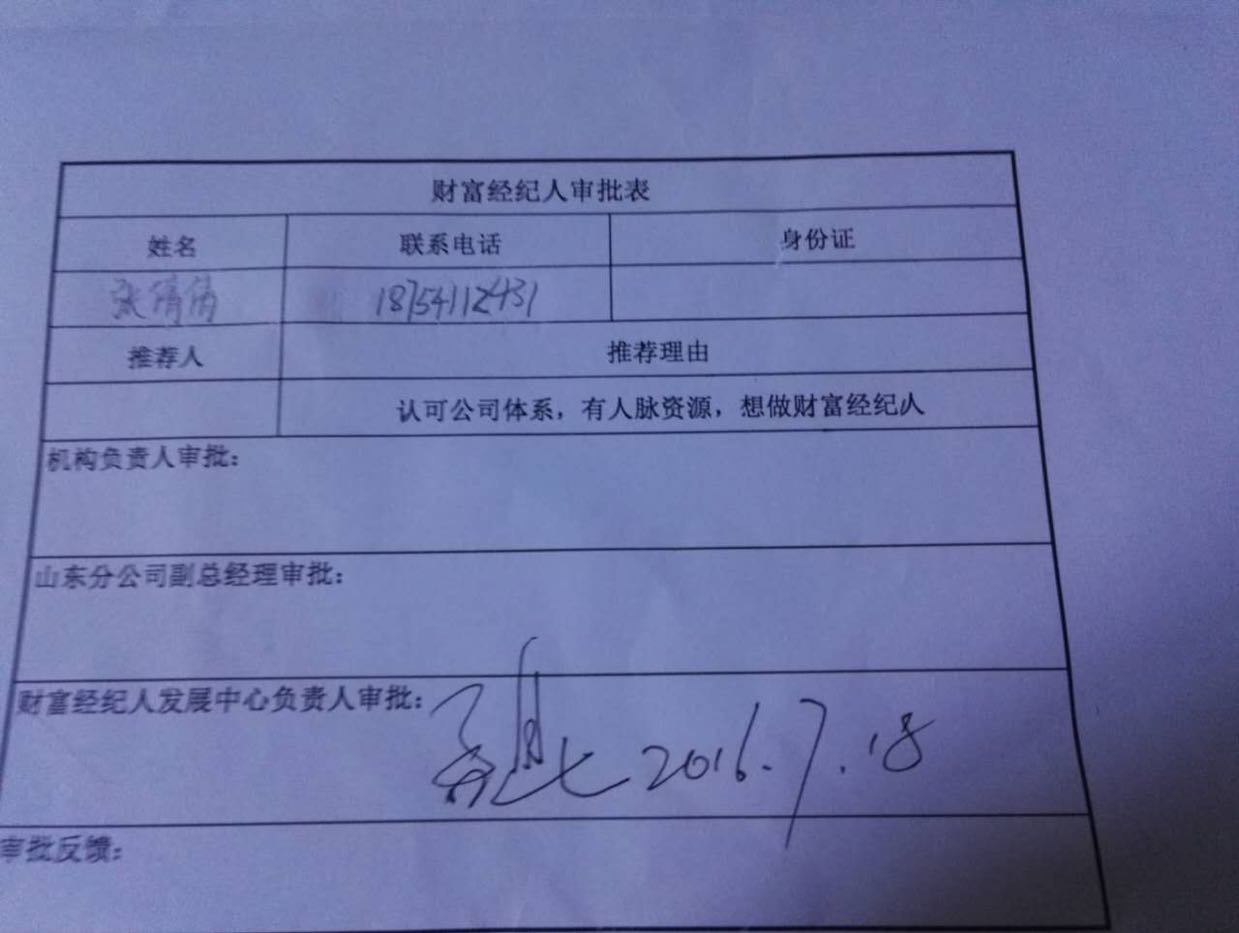 财富经纪人审批表
姓名 联系电话 身份证
张倩倩 18754112431
推荐人 推荐理由
认可公司体系，有人脉资源，想做财富经纪人
机构负责人审批：
山东分公司副总经理审批：
财富经纪人发展中心负责人审批：
2016.7.18
审批反馈：